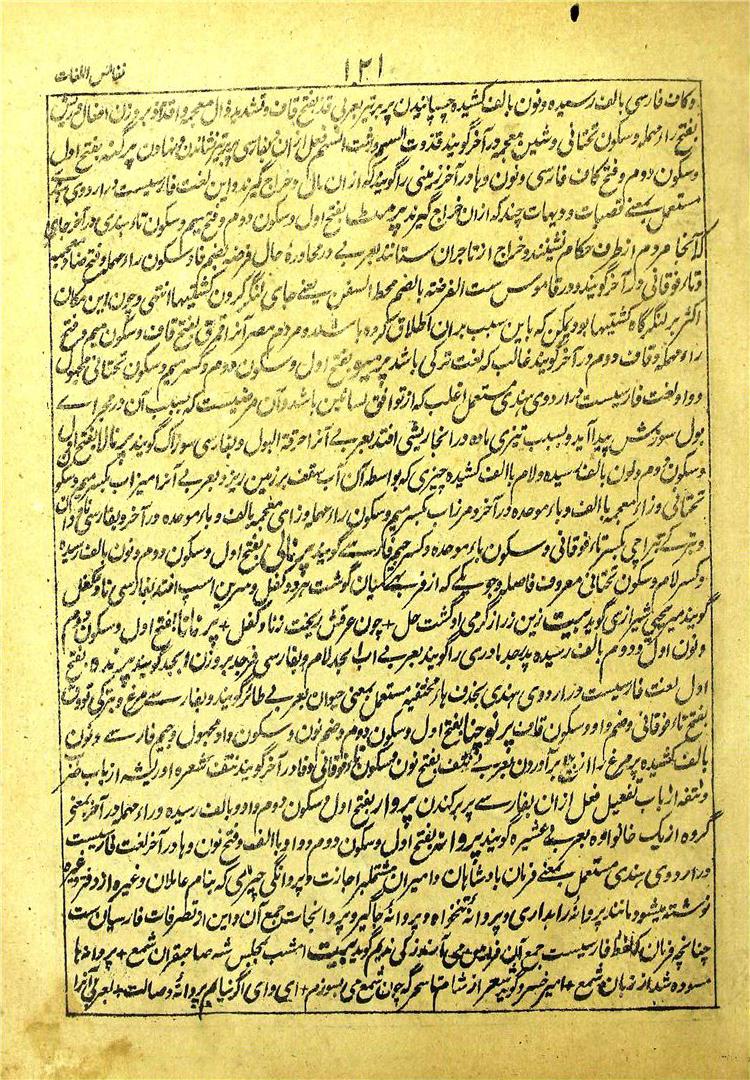 نفائس اللغات
١٣١
وکاف فارسی بالف رسیده و نون بالف کشیده چسپانیدن پر بر تیر بعربی قذ بفتح قاف و تشدید ذال معجمه و اقذاذ بر وزن افعال و
بفتح راء مهمله و سکون تحتانی و شین معجمه در آخر گویند قذذت السهم و فعل ازان بفارسی پر بر تیر نشاندن و نهادن پرگنه بفتح اول
وسکون دوم و فتح کاف فارسی و نون و ها در آخر زمینی را گویند که ازان مال و خراج گیرند و این لغت فارسیست در اردوی
مستعمل بمعنی قصبات و دیهات چند که ازان خراج گیرند پرمٹ بفتح اول و سکون دوم و فتح میم و سکون تاء هندی در آخر جای
که آنجا مردم از طرف حکام نشینند و خراج از تاجران ستانند بعربی در محاورهٔ حال فرضه بضم فا و سکون راء مهمله و فتح ضاد معجمه
و تاء فوقانی در آخر گویند و در قاموس ست الفرضة بالضم محط السفن یعنی جای لنگر کردن کشتیها انتهی و چون این مکان
اکثر بر لنگرگاه کشتیها بود ممکن که باین سبب بران اطلاق کرده باشند و مردم مصر آنرا قمرق بضم قاف و سکون میم و فتح
راء مهمله و قاف دوم در آخر گویند غالب که لغت ترکی باشد پرمیو بفتح اول و سکون دوم و کسر میم و سکون تحتانی مجهول
و واو لغت فارسیست در اردوی هندی مستعمل اغلب که از توافق لسانین باشد و آن مرضیست که بسبب آن در مجرای
بول سوزش پیدا آید و بسبب تیزی ماده در انجا ریشی افتد بعربی آنرا حرقة البول و بفارسی سوزاک گویند پرنالا بفتح اول
وسکون دوم و نون بالف رسیده و لام با الف کشیده چیزی که بواسطه آن آب سقف بر زمین ریزد بعربی آنرا میزاب بکسر میم و سکون
تحتانی و زاء معجمه با الف و باء موحده در آخر و مرزاب بکسر میم و سکون راء مهمله و زای معجمه بالف و باء موحده در آخر و بفارسی ناودان
بکسر تاء فوقانی و سکون باء موحده و کسر جیم فارسی گویند پرنالی بفتح اول و سکون دوم و نون بالف رسیده
و کسر لام و سکون تحتانی معروف فاصله و جویی که از فربهی میان گوشت هر دو کفل و سرین اسپ افتد بفارسی ناو کفل
گویند میر یحیی شیرازی گوید بیت زین زر از گرمی او گشت حل + چون عرقش ریخت ز ناو کفل + پرنانا بفتح اول و سکون دوم
و نون اول و دوم بالف رسیده پدر جد مادری را گویند بعربی اب الجد لام و بفارسی فرجد بر وزن ابجد گویند پرنده بفتح
اول لغت فارسیست و در اردوی هندی بحذف هاء مختفیه مستعمل بمعنی حیوان بعربی طائر گویند و بفارسی مرغ و بترکی قوش
بفتح تاء فوقانی و ضم واو و سکون قاف پرنوچنا بفتح اول و سکون دوم و ضم نون و سکون واو مجهول و جیم فارسی و نون
بالف کشیده پر مرغ کو از بیخ برآوردن بعربی نتف بفتح نون و سکون تاء فوقانی و فا در آخر گویند نتف شعره و ریشه از باب ضرب
و نتفه از باب تفعیل فعل ازان بفارسی پر برکندن پروار بفتح اول و سکون دوم و واو بالف رسیده و راء مهمله در آخر بمعنی
گروه از یک خانواده بعربی عشیره گویند پروانه بفتح اول و سکون دوم و واو با الف و فتح نون و ها در آخر لغت فارسیست
در اردوی هندی مستعمل بمعنی فرمان بادشاهان و امیران مشتمل بر اجازت و پروانگی چیزی که بنام عاملان و غیره از دفتر و غیره
نوشته میشود مانند پروانهٔ راهداری و پروانهٔ تنخواه و پروانهٔ جاگیر و پروانجات جمع آن و این از تصرفات فارسیان ست
چنانچه فرمان که لفظ فارسیست جمع آن فرامین می آرند زکی ندیم گوید بیت امشب بمجلس شه صاحبقران شمع + پروانها
مسوده شد از زبان شمع + امیر خسرو گوید شعر از شام تا سحر گه چون شمع می بسوزم + ای وای اگر نیابم پروانهٔ وصالت + بعربی آنرا